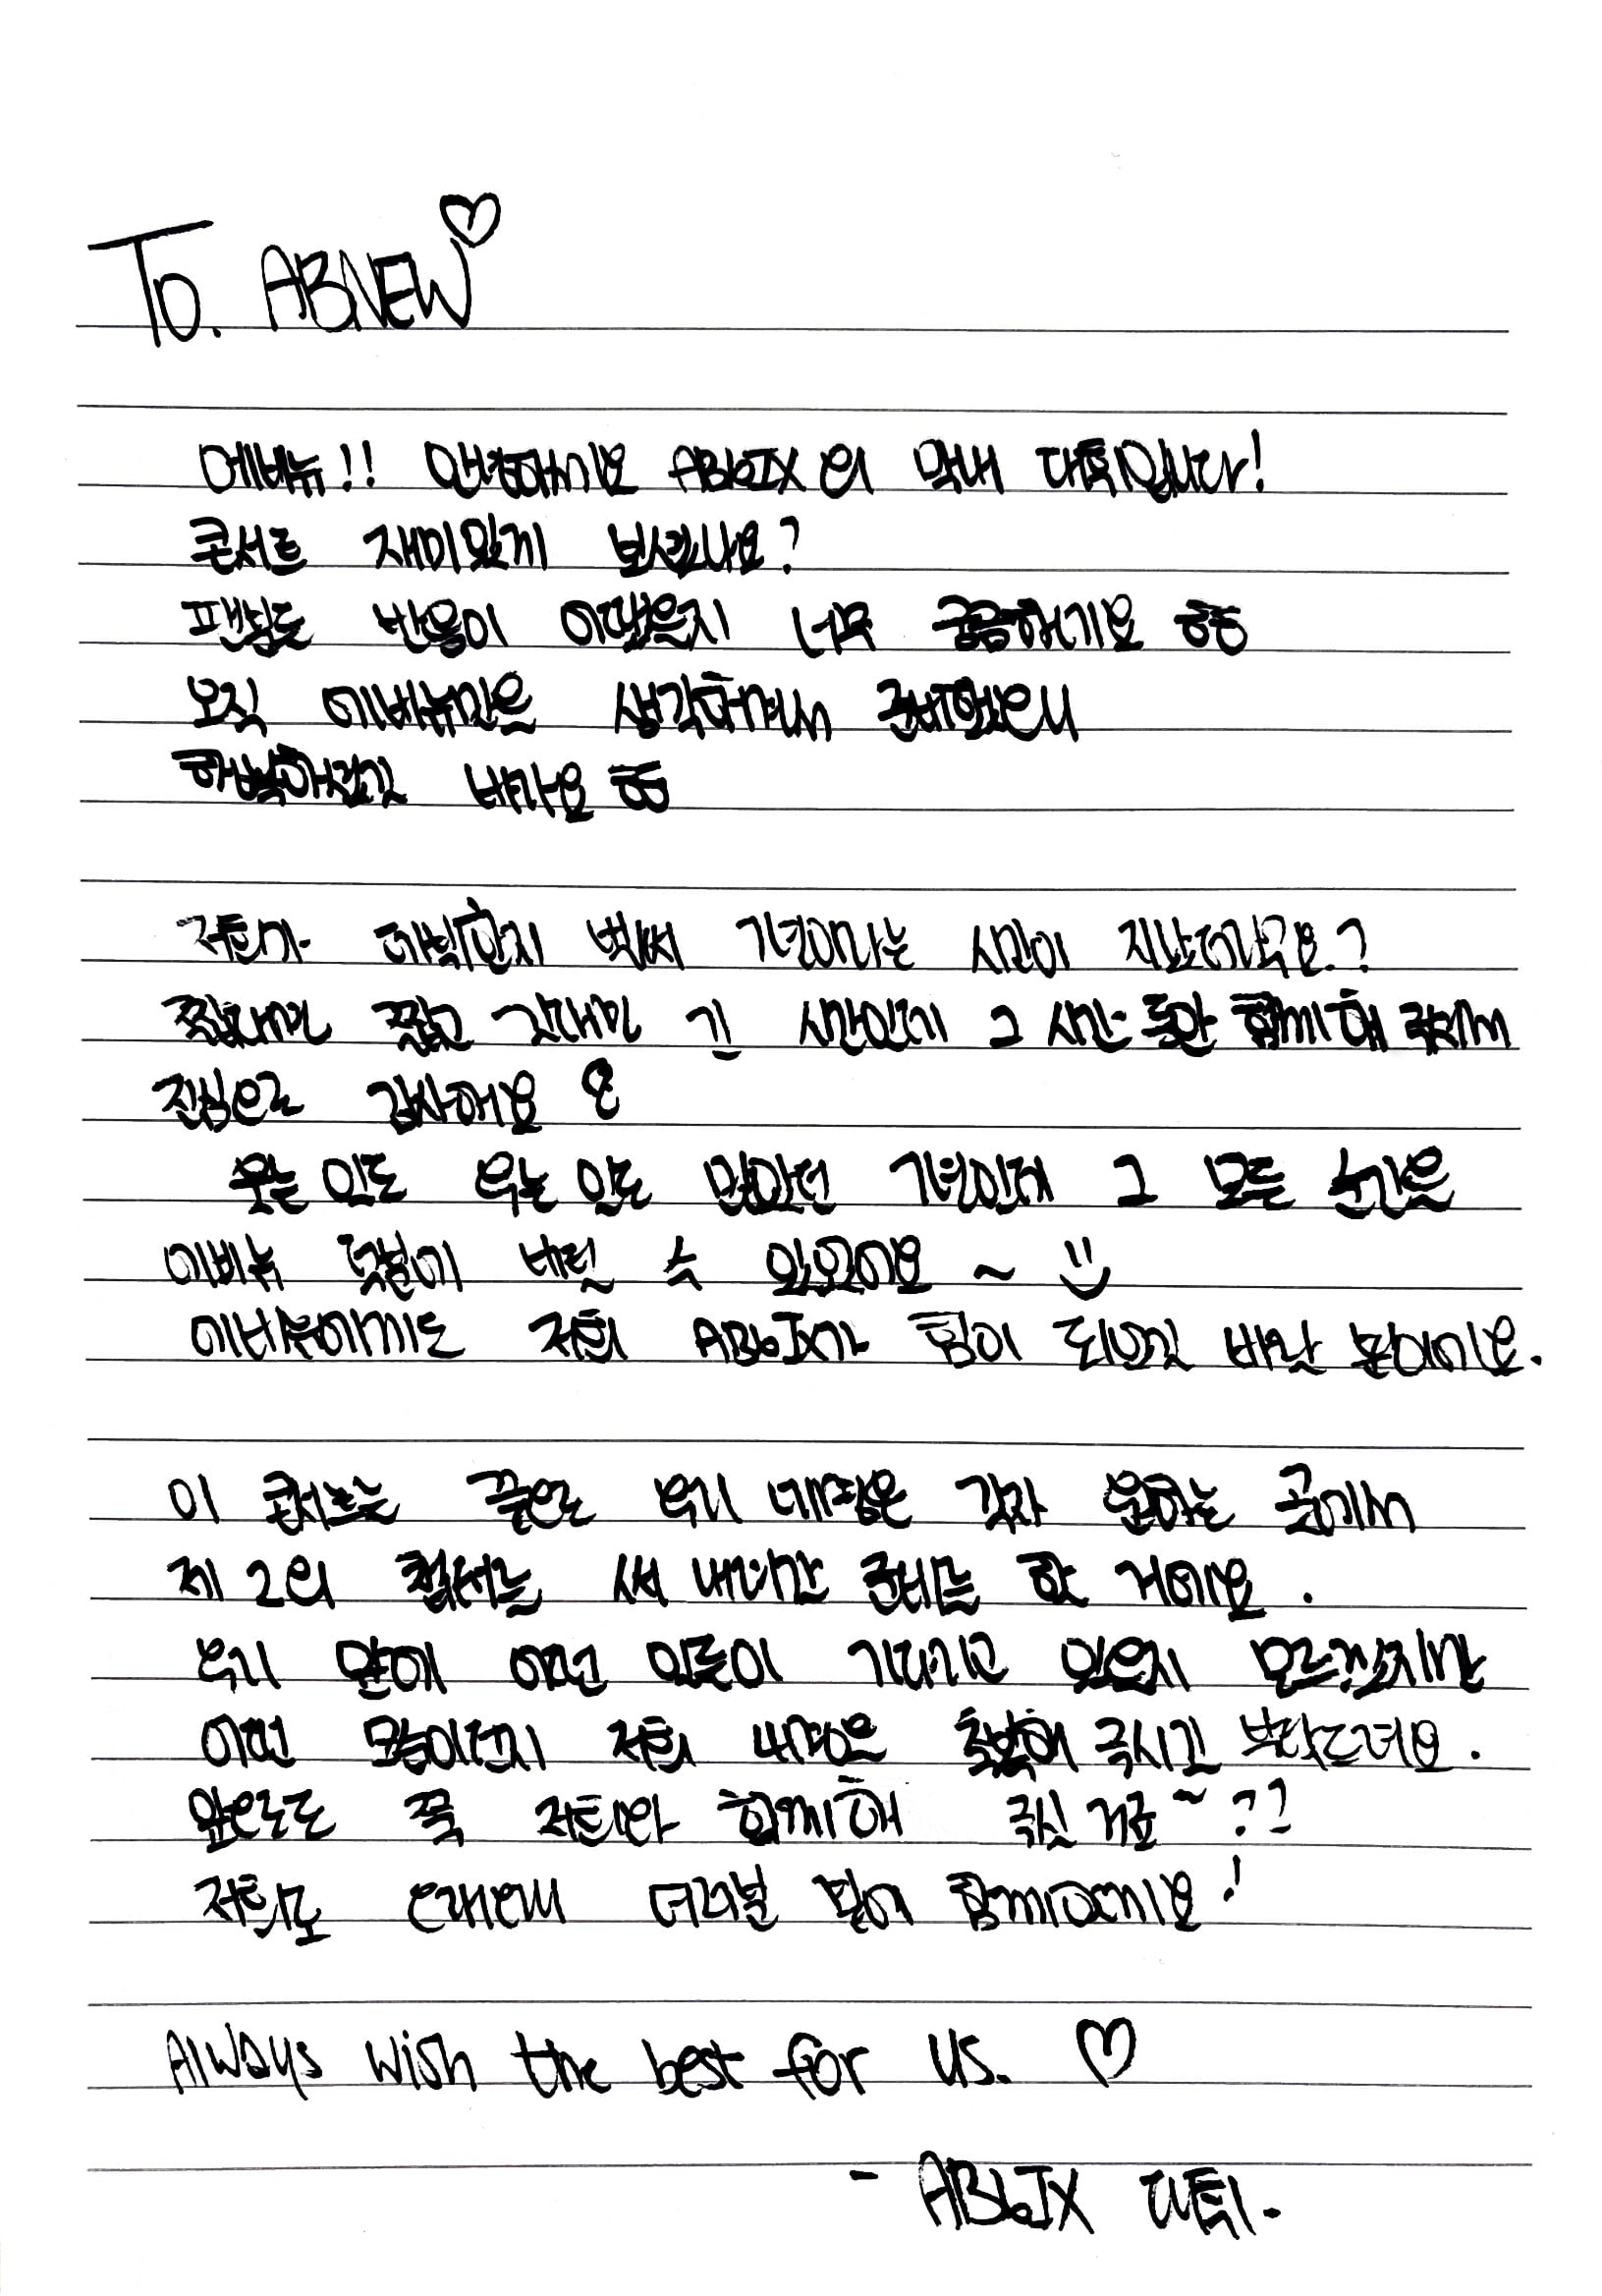 To. ABNEW♡
에비뉴!! 안녕하세요 AB6IX의 막내 대휘입니다!
콘서트 재미있게 보셨나요?
팬분들 반응이 어땠을지 너무 궁금하네요 ㅎㅎ
오직 에비뉴만을 생각하면서 준비했으니
행복하셨길 바라요 ㅎㅎ
저희가 데뷔한지 벌써 3년이라는 시간이 지났더라구요.?
짧다면 짧고 길다면 긴 시간인데 그 시간 동안 함께해 주셔서
진심으로 감사해요
웃는 일도 우는 일도 많았던 3년인데 그 모든 순간을
에비뉴 덕분에 버틸 수 있었어요 ~ :)
에비뉴에게도 저희 AB6IX가 힘이 되었길 바랄 뿐이에요.
이 콘서트는 끝으로 우리 네명은 각자 원하는 곳에서
제 2의 챕터를 써 내려갈 준비를 할 거에요.
우리 앞에 어떤 일들이 기다리고 있을지 모르겠지만
어떤 모습이던지 저희 네명을 축복해 주시길 부탁드려요.
앞으로도 쭉 저희와 함께해 주실 거죠~??
저희도 언제나 여러분 곁에 함께할게요!
Always wish the best for us. ♡
- AB6IX 대휘.